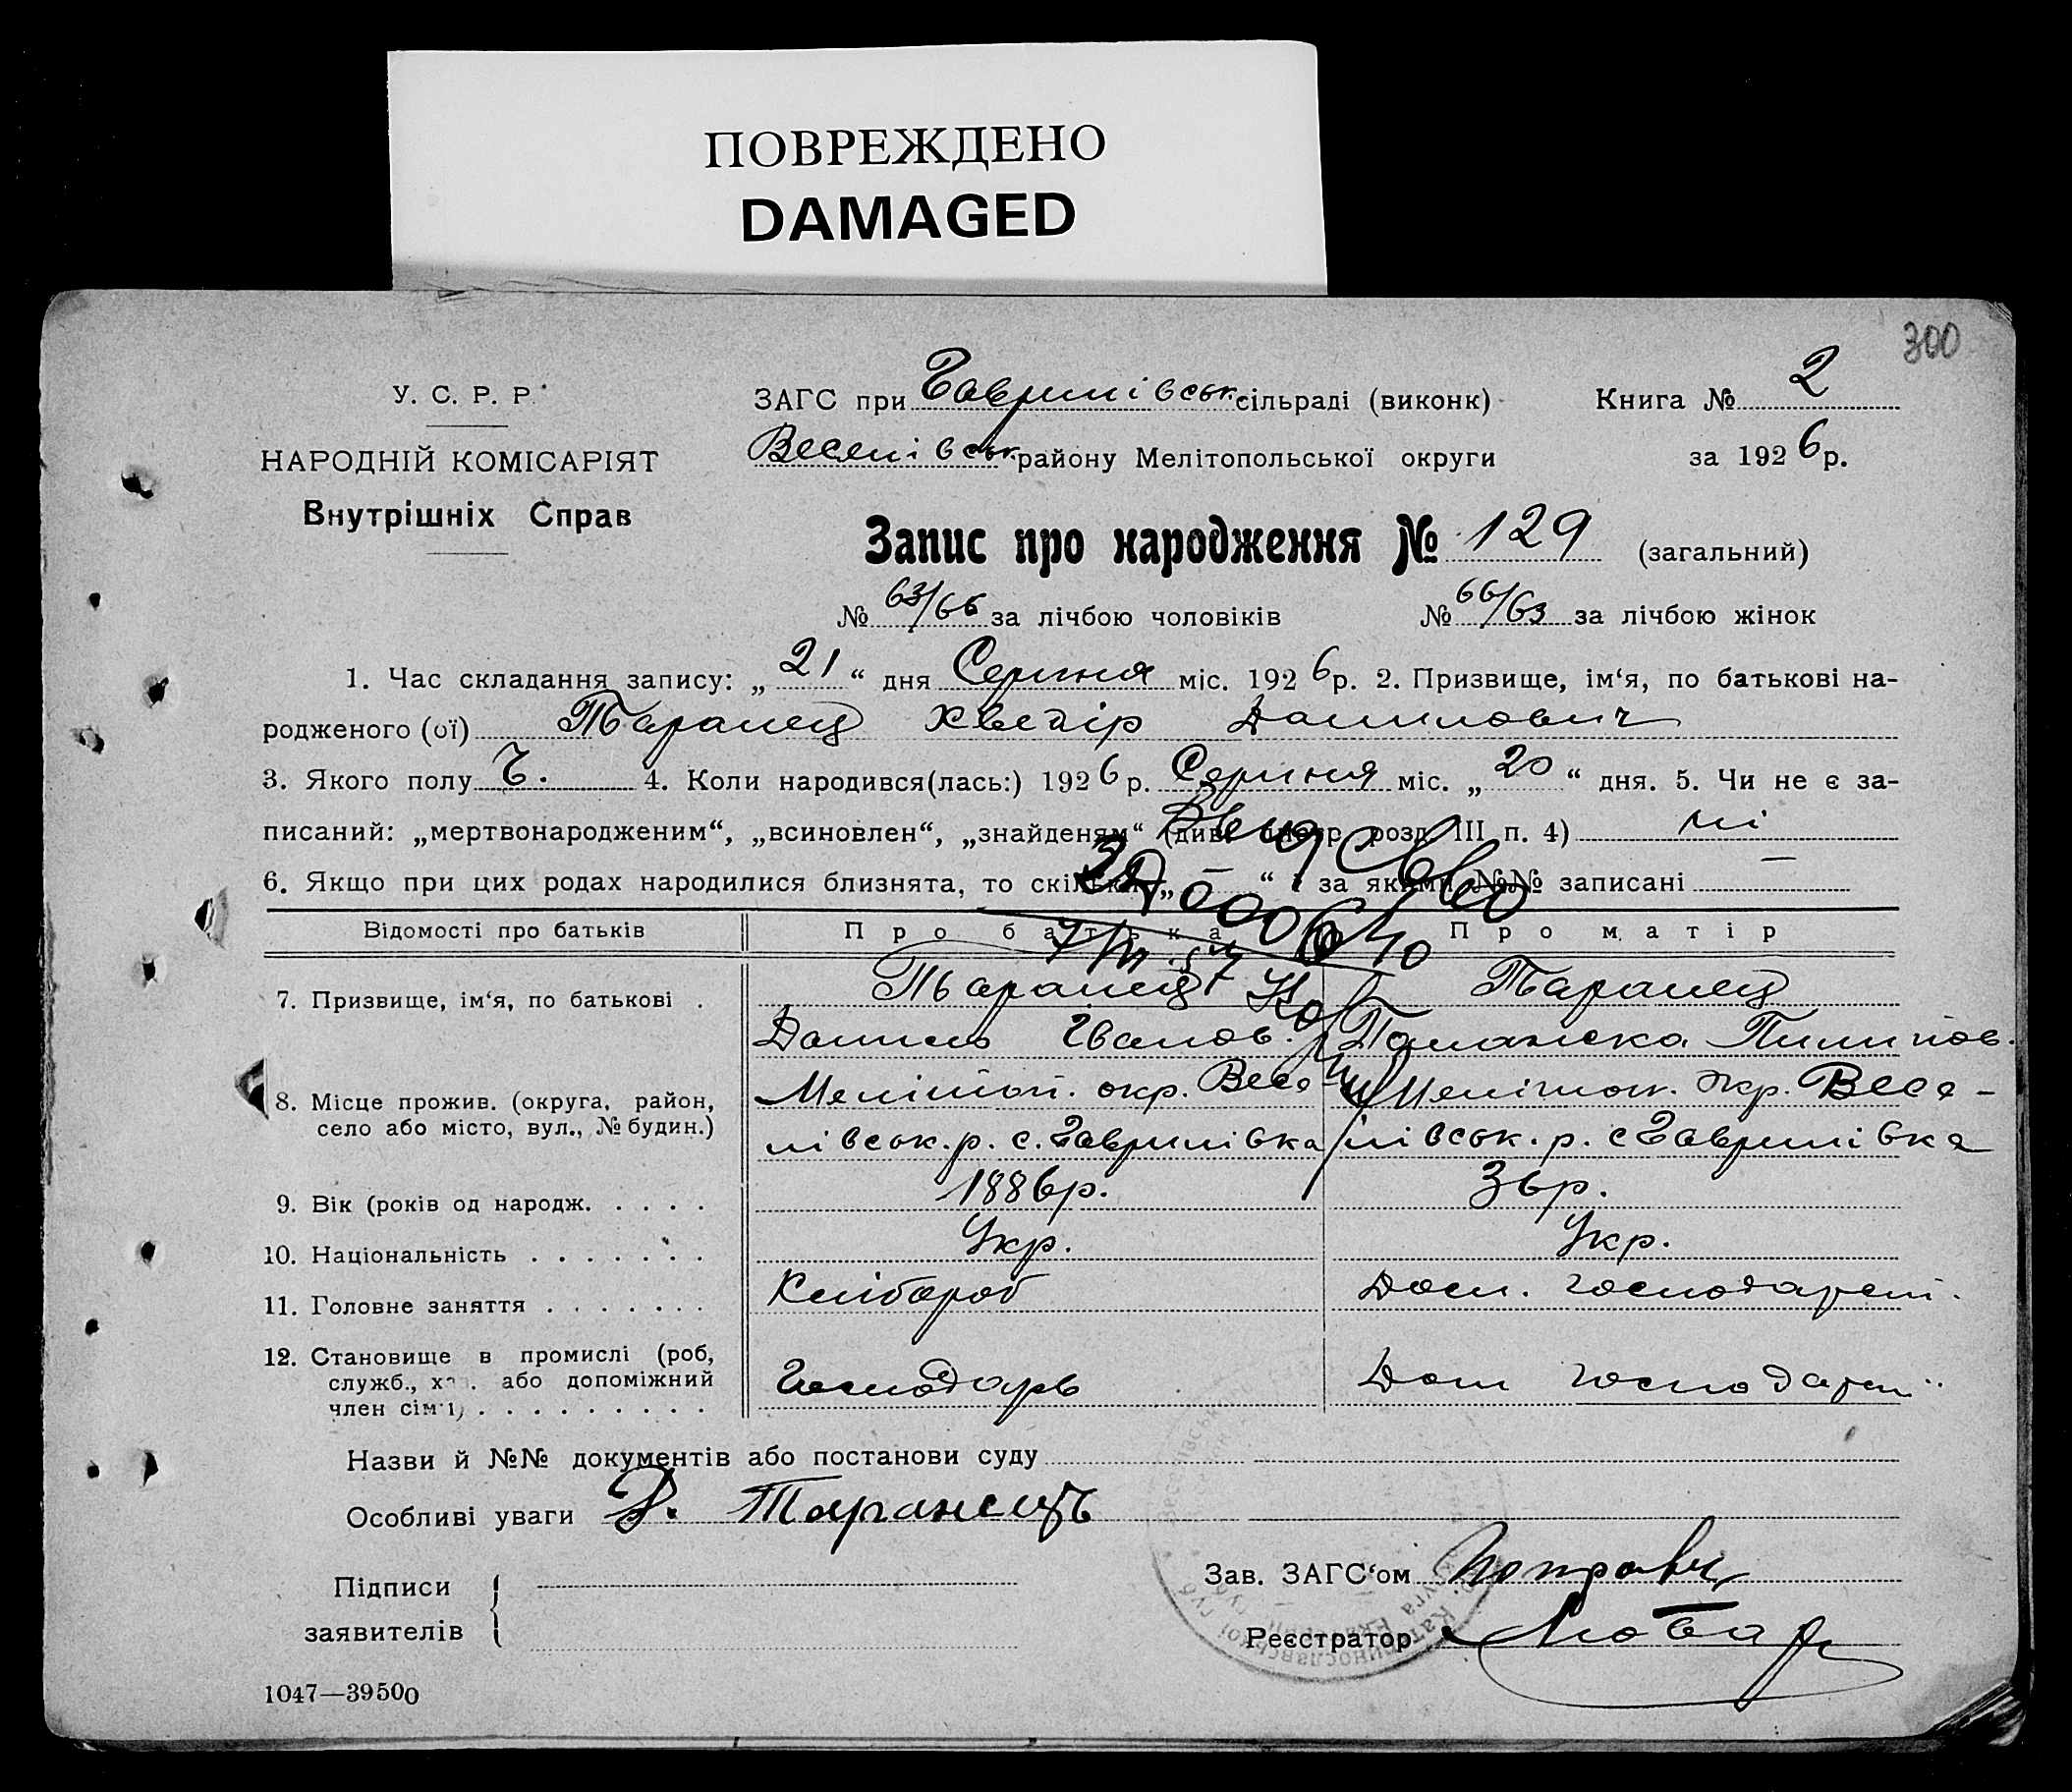 ПОВРЕЖДЕНО
DAMAGED
300
У. С. Р. Р.
НАРОДНІЙ КОМІСАРІЯТ
Внутрішніх Справ
ЗАГС при Гаврилівськ. сільраді (виконк)
Веселівськ. району Мелітопольської округи
Книга № 2
за 1926 р.
Запис про народження № 129 (загальний)
№ 63/66 за лічбою чоловіків № 66/63 за лічбою жінок
1. Час складання запису: „21“ дня Серпня міс. 1926 р. 2. Призвище, ім‘я, по батькові на-
родженого (ої) Таранец Хведір Данилович
3. Якого полу Ч. 4. Коли народився(лась:) 1926 р. Серпня міс. „20“ дня. 5. Чи не є за-
писаний: „мертвонародженим“, „всиновлен“, „знайденям“ (див. розд. III п. 4) ні
6. Якщо при цих родах народилися близнята, то скільки „—“ і за якими №№ записані —
Відомості про батьків Про батька Про матір
7. Призвище, ім‘я, по батькові . Таранец Таранец
Данило Іванов. Пилипов.
8. Місце прожив. (округа, район, Меліт. окр. Весе- Меліт. окр. Весе-
село або місто, вул., № будин.) лівськ. р. с. Гаврилівка лівськ. р. с Гаврилівка
9. Вік (років од народж. . . . . 1886р. 36р.
10. Національність . . . . . . . Укр. Укр.
11. Головне заняття . . . . . . . Хлібороб Дом. господарст.
12. Становище в промислі (роб,
служб., х . або допоміжний Господарь Дом господарст
член сім‘ї) . . . . . . . . .
Назви й №№ документів або постанови суду
Особливі уваги Д. Таранецъ
Підписи
заявителів
Зав. ЗАГС‘ом
Реєстратор
1047—39500